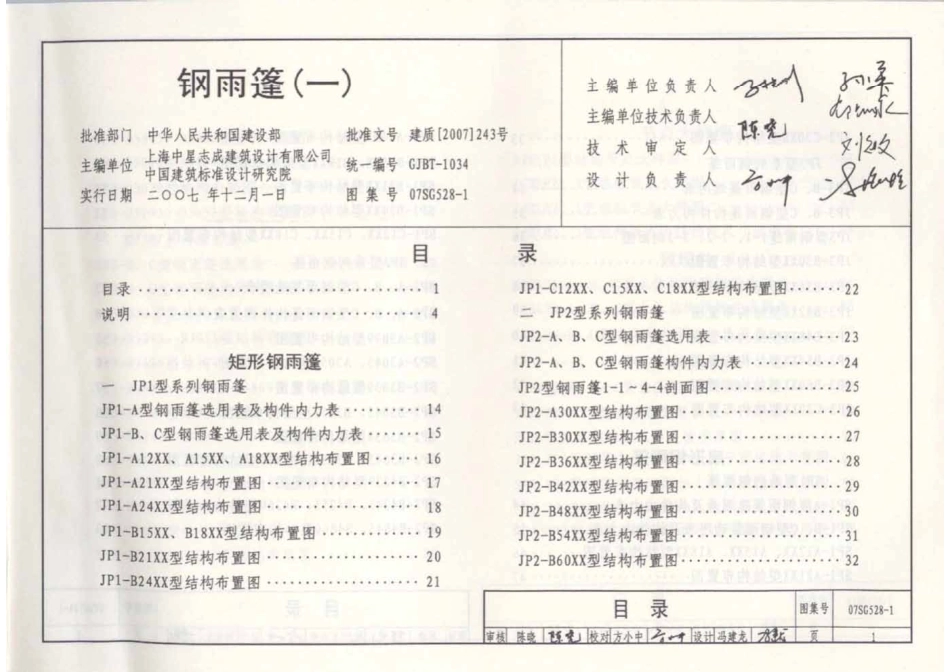 钢雨篷(一)
批准部门 中华人民共和国建设部 批准文号 建质[2007]243号
主编单位 上海中星志成建筑设计有限公司
中国建筑标准设计研究院
统一编号 GJBT-1034
实行日期 二〇〇七年十二月一日 图集号 07SG528-1
主编单位负责人
主编单位技术负责人
技术审定人 陈晓
设计负责人
目录
目录 1
说明 4
矩形钢雨篷
一 JP1型系列钢雨篷
JP1-A型钢雨篷选用表及构件内力表 14
JP1-B、C型钢雨篷选用表及构件内力表 15
JP1-A12XX、A15XX、A18XX型结构布置图 16
JP1-A21XX型结构布置图 17
JP1-A24XX型结构布置图 18
JP1-B15XX、B18XX型结构布置图 19
JP1-B21XX型结构布置图 20
JP1-B24XX型结构布置图 21
JP1-C12XX、C15XX、C18XX型结构布置图 22
二 JP2型系列钢雨篷
JP2-A、B、C型钢雨篷选用表 23
JP2-A、B、C型钢雨篷构件内力表 24
JP2型钢雨篷1-1~4-4剖面图 25
JP2-A30XX型结构布置图 26
JP2-B30XX型结构布置图 27
JP2-B36XX型结构布置图 28
JP2-B42XX型结构布置图 29
JP2-B48XX型结构布置图 30
JP2-B54XX型结构布置图 31
JP2-B60XX型结构布置图 32
目录 图集号 07SG528-1
审核 陈晓 陈晓 校对 方小中 设计 冯建龙 页 1